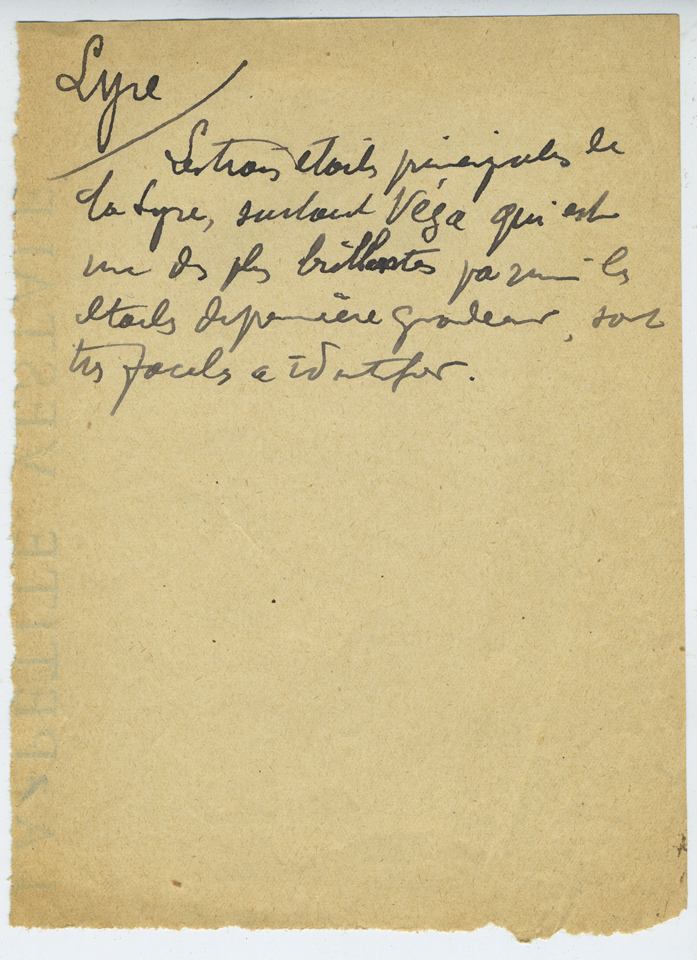 Lyre
Les trois étoiles principales de
la Lyre, surtout Véga qui est
une des plus brillantes parmi les
étoiles de première grandeur, sont
très faciles à identifier.
LA PETITE VESTALE